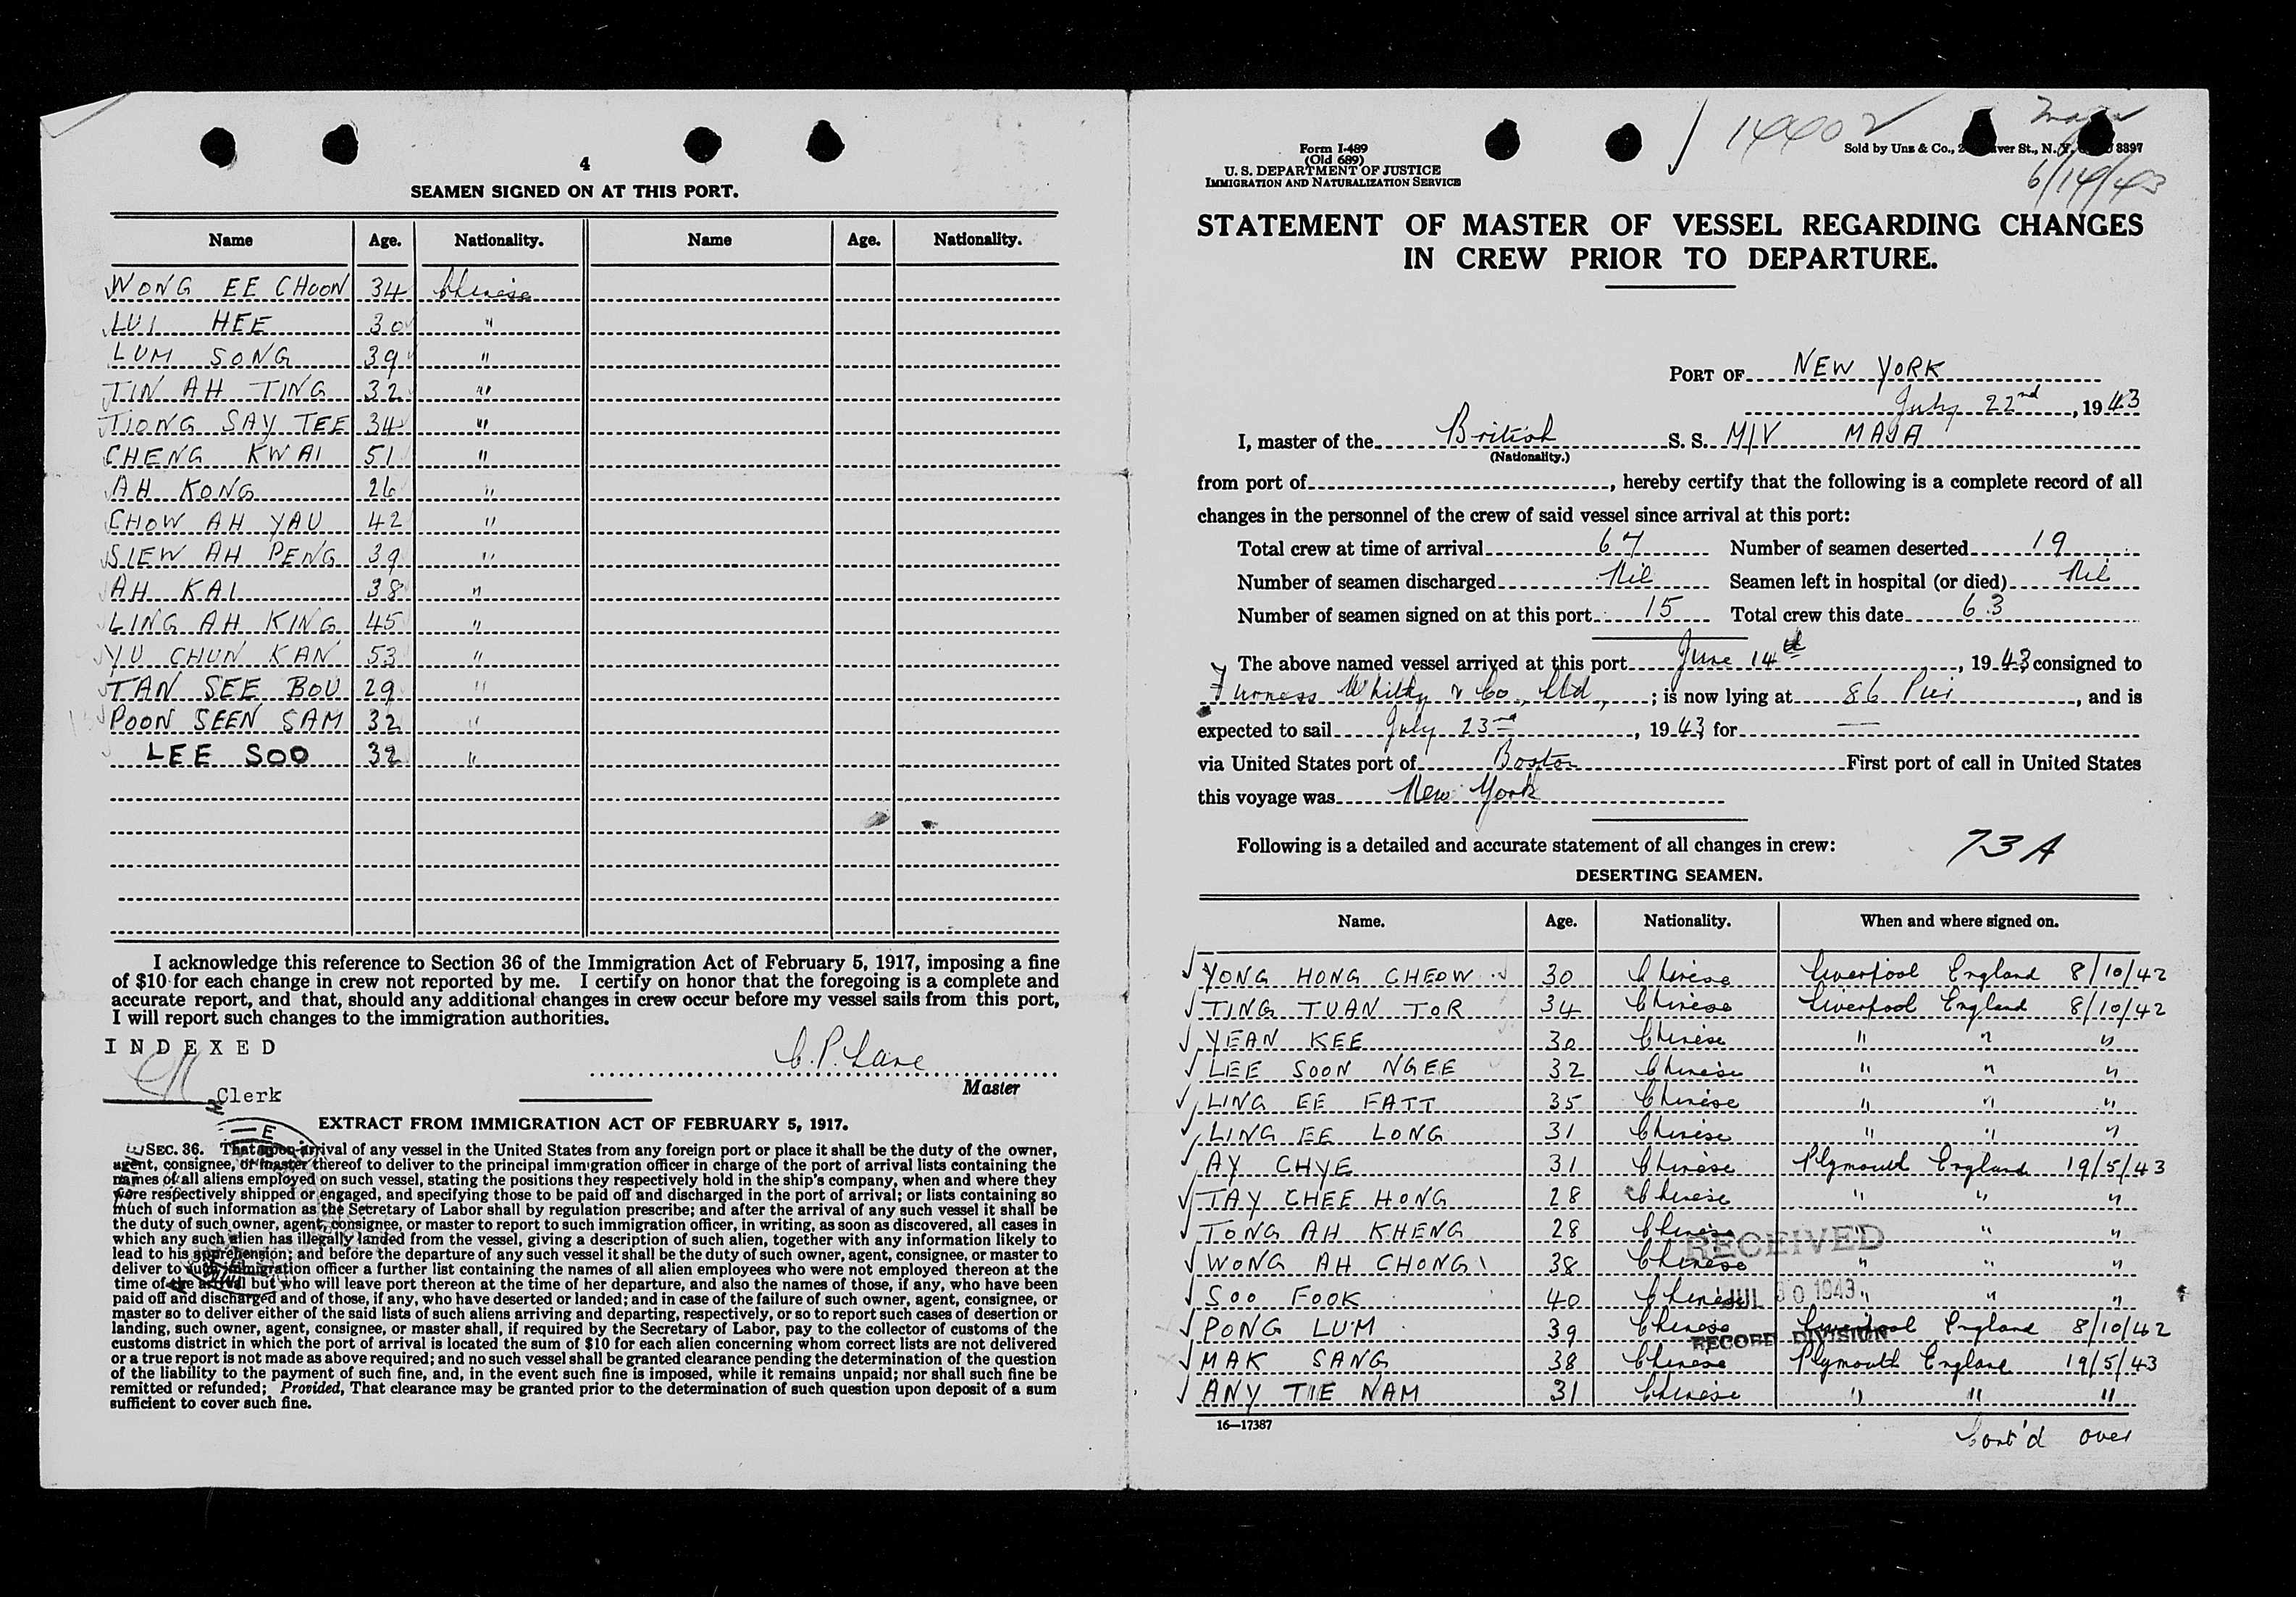 4
SEAMEN SIGNED ON AT THIS PORT.
Name Age. Nationality. Name Age. Nationality.
WONG EE CHOON 34 Chinese
LUI HEE 30 "
LUM SONG 39 "
TIN AH TING 32 "
TIONG SAY TEE 34 "
CHENG KWAI 51 "
AH KONG 26 "
CHOW AH YAU 42 "
SIEW AH PENG 39 "
AH KAI 38 "
LING AH KING 45 "
YU CHUN KAN 53 "
TAN SEE BOU 29 "
POON SEEN SAM 32 "
LEE SOO 32 "
I acknowledge this reference to Section 36 of the Immigration Act of February 5, 1917, imposing a fine
of $10 for each change in crew not reported by me. I certify on honor that the foregoing is a complete and
accurate report, and that, should any additional changes in crew occur before my vessel sails from this port,
I will report such changes to the immigration authorities.
INDEXED
C. P. Lane
Master
Clerk
EXTRACT FROM IMMIGRATION ACT OF FEBRUARY 5, 1917.
SEC. 36. That upon arrival of any vessel in the United States from any foreign port or place it shall be the duty of the owner,
agent, consignee, or master thereof to deliver to the principal immigration officer in charge of the port of arrival lists containing the
names of all aliens employed on such vessel, stating the positions they respectively hold in the ship's company, when and where they
were respectively shipped or engaged, and specifying those to be paid off and discharged in the port of arrival; or lists containing so
much of such information as the Secretary of Labor shall by regulation prescribe; and after the arrival of any such vessel it shall be
the duty of such owner, agent, consignee, or master to report to such immigration officer, in writing, as soon as discovered, all cases in
which any such alien has illegally landed from the vessel, giving a description of such alien, together with any information likely to
lead to his apprehension; and before the departure of any such vessel it shall be the duty of such owner, agent, consignee, or master to
deliver to such immigration officer a further list containing the names of all alien employees who were not employed thereon at the
time of the arrival but who will leave port thereon at the time of her departure, and also the names of those, if any, who have been
paid off and discharged and of those, if any, who have deserted or landed; and in case of the failure of such owner, agent, consignee, or
master so to deliver either of the said lists of such aliens arriving and departing, respectively, or so to report such cases of desertion or
landing, such owner, agent, consignee, or master shall, if required by the Secretary of Labor, pay to the collector of customs of the
customs district in which the port of arrival is located the sum of $10 for each alien concerning whom correct lists are not delivered
or a true report is not made as above required; and no such vessel shall be granted clearance pending the determination of the question
of the liability to the payment of such fine, and, in the event such fine is imposed, while it remains unpaid; nor shall such fine be
remitted or refunded; Provided, That clearance may be granted prior to the determination of such question upon deposit of a sum
sufficient to cover such fine.
Form I-489
(Old 689)
U. S. DEPARTMENT OF JUSTICE
IMMIGRATION AND NATURALIZATION SERVICE
14402
Sold by Unz & Co., St., N. Y. 8897
6/14/43
STATEMENT OF MASTER OF VESSEL REGARDING CHANGES
IN CREW PRIOR TO DEPARTURE.
PORT OF NEW YORK
July 22nd, 1943
I, master of the British S. S. M/V MAJA
(Nationality.)
from port of , hereby certify that the following is a complete record of all
changes in the personnel of the crew of said vessel since arrival at this port:
Total crew at time of arrival 67 Number of seamen deserted 19
Number of seamen discharged Nil Seamen left in hospital (or died) Nil
Number of seamen signed on at this port 15 Total crew this date 63
The above named vessel arrived at this port June 14th, 1943 consigned to
Furness Whithy & Co., Ltd.,; is now lying at 86 Pier, and is
expected to sail July 23rd, 1943 for —
via United States port of Boston First port of call in United States
this voyage was New York
Following is a detailed and accurate statement of all changes in crew: 73A
DESERTING SEAMEN.
Name. Age. Nationality. When and where signed on.
YONG HONG CHEOW 30 Chinese Liverpool England 8/10/42
TING TUAN TOR 34 Chinese Liverpool England 8/10/42
YEAN KEE 30 Chinese " " "
LEE SOON NGEE 32 Chinese " " "
LING EE FATT 35 Chinese " " "
LING EE LONG 31 Chinese " " "
AY CHYE 31 Chinese Plymouth England 19/5/43
TAY CHEE HONG 28 Chinese " " "
TONG AH KHENG 28 Chinese " " "
WONG AH CHONG 38 Chinese " " "
SOO FOOK 40 Chinese " " "
PONG LUM 39 Chinese Liverpool England 8/10/42
MAK SANG 38 Chinese Plymouth England 19/5/43
ANY TIE NAM 31 Chinese " " "
RECEIVED
JUL 30 1943
RECORD DIVISION
16—17387
Cont'd over